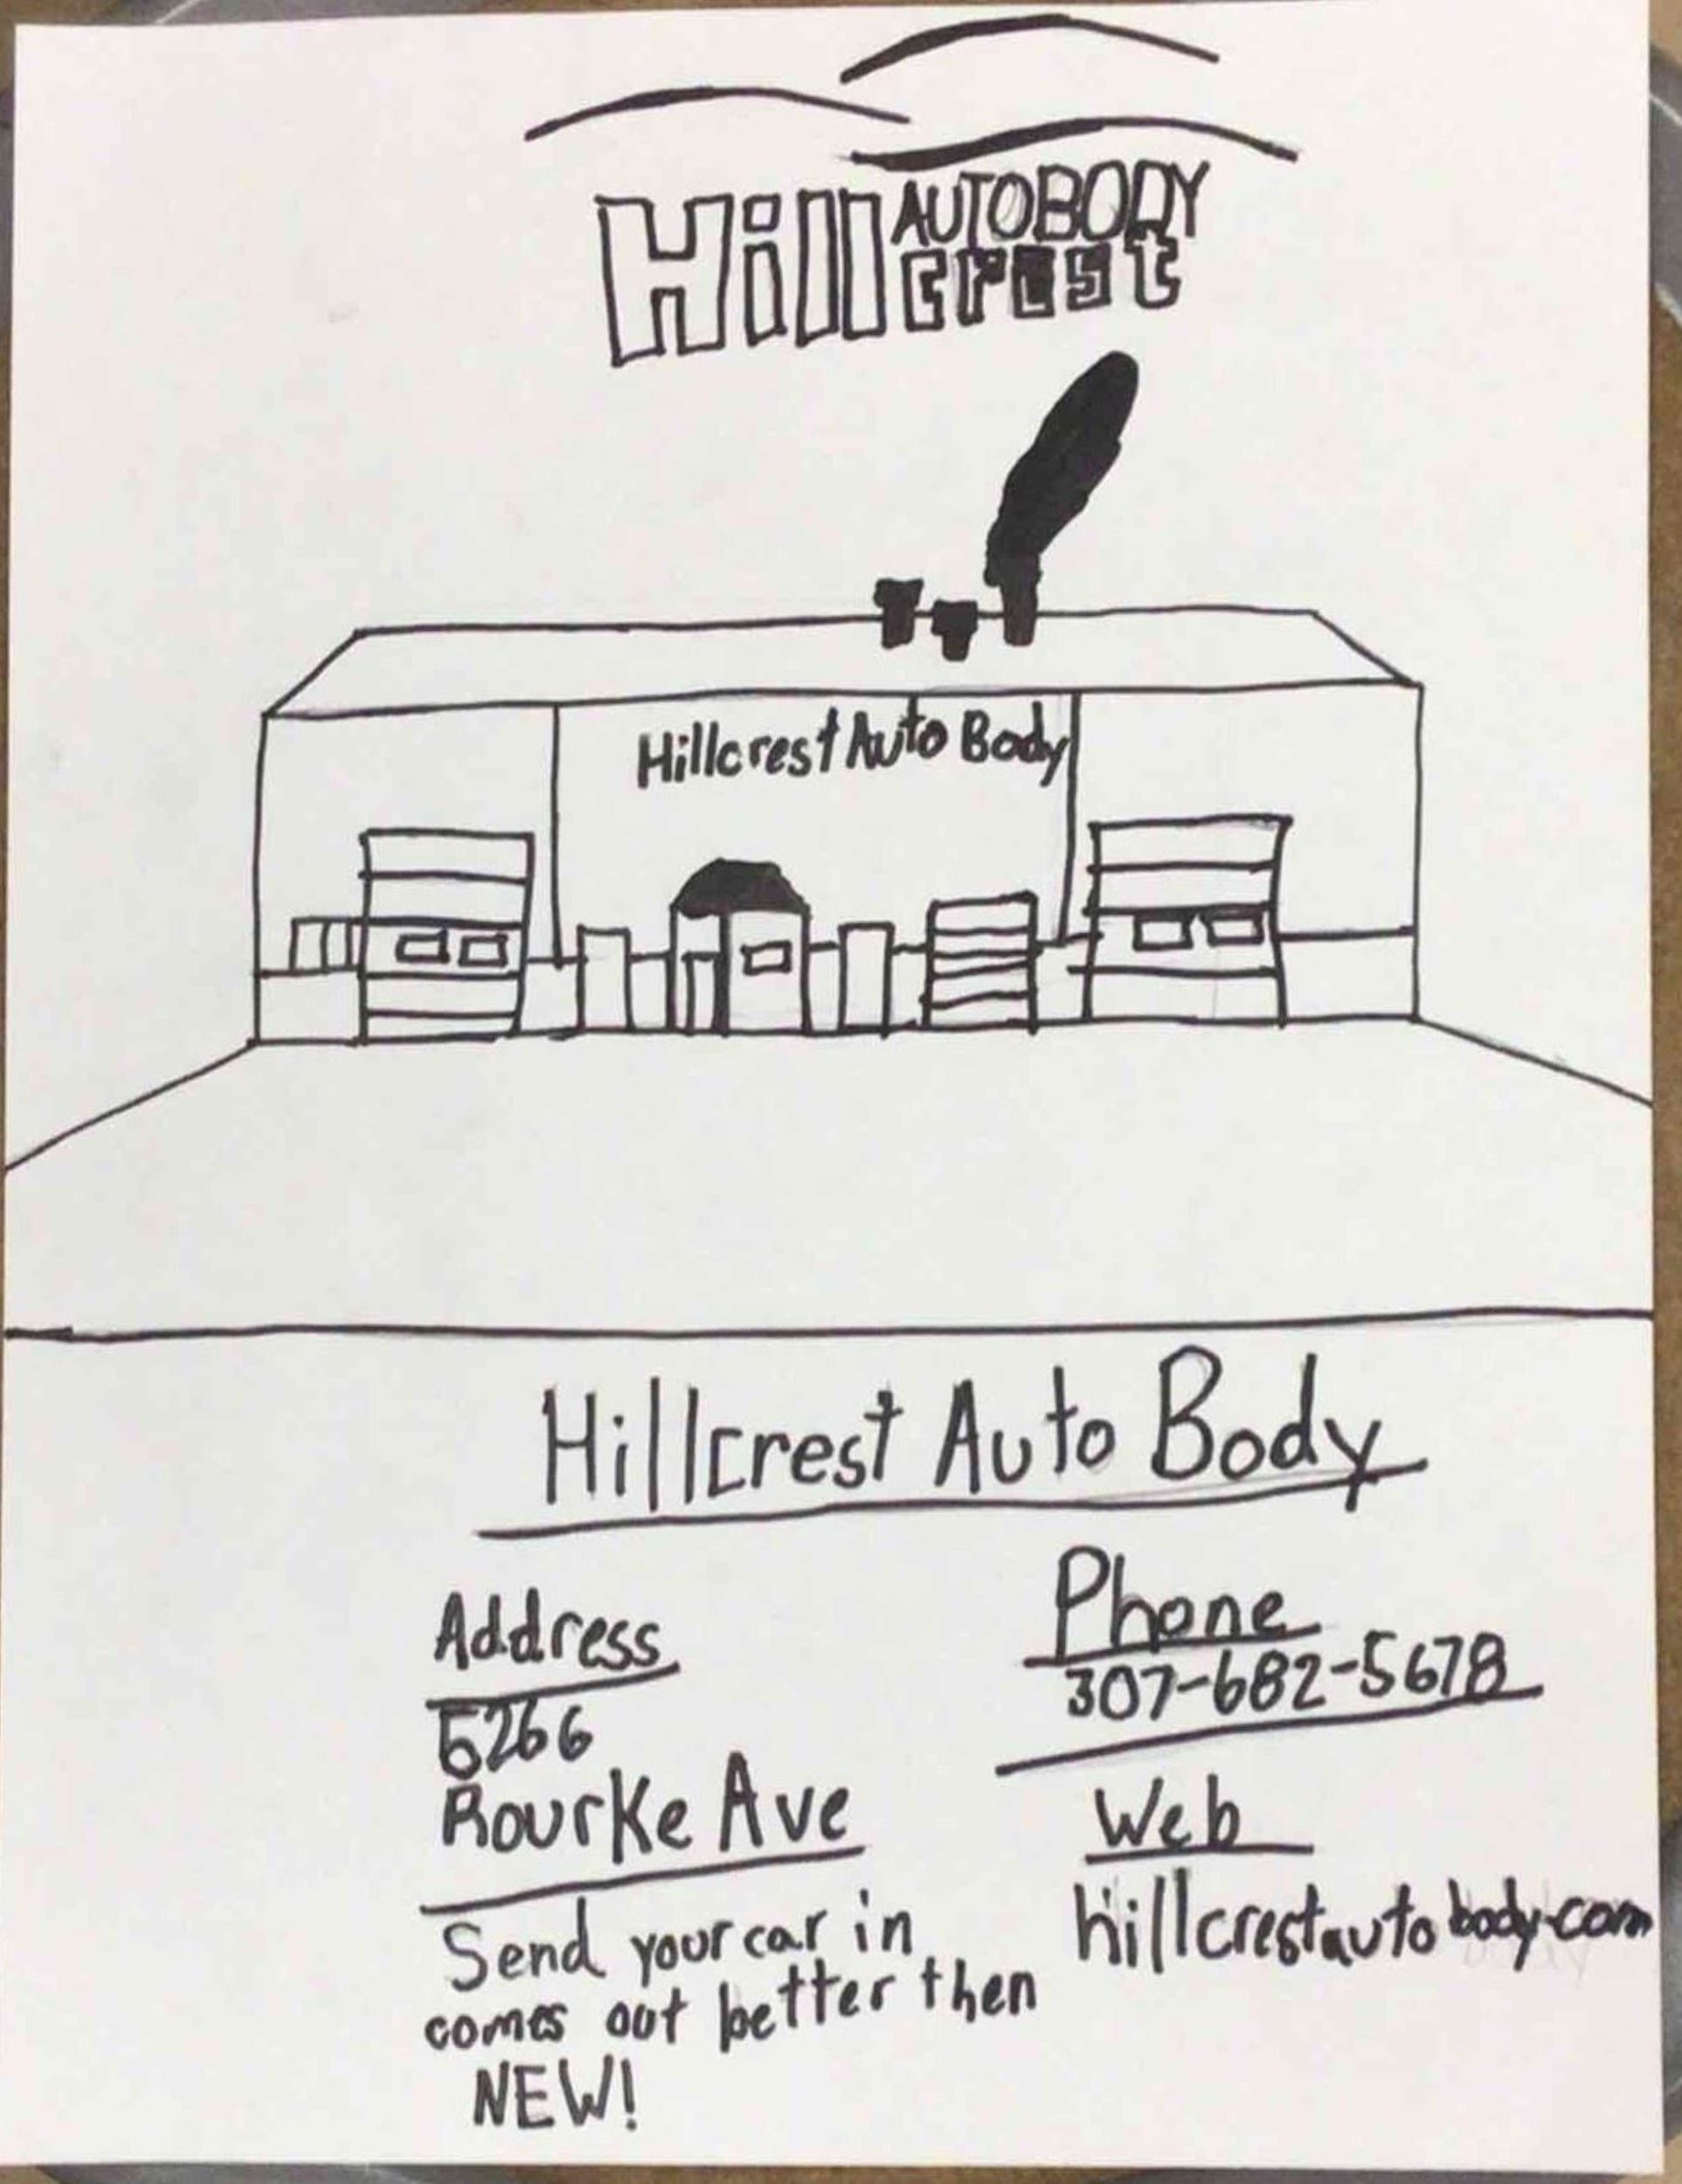 Hill AUTOBODY
crest
Hillcrest Auto Body
Hillcrest Auto Body
Address
5266
Rourke Ave
Send your car in
comes out better then
NEW!
Phone
307-682-5678
Web
hillcrestautobody.com